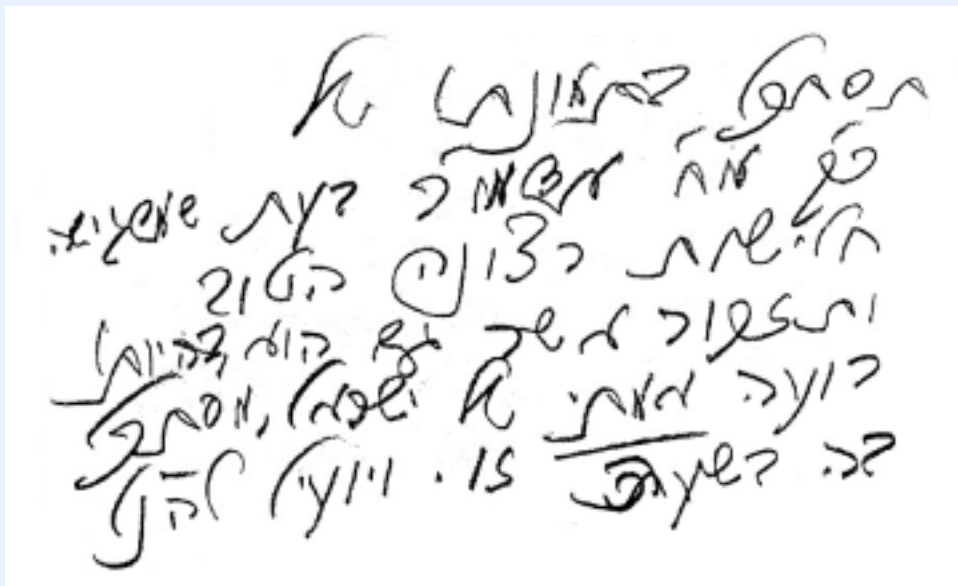 תסתכל בתמונתו של
כ"ק מו"ח אדמו"ר בעת שמרגיש
חלישות רצונה הטוב
ותזכור אשר גם הוא בהיותו
רועה אמתי של ישראל, מסתכל
בה בשעה זו. ויועיל להנ"ל